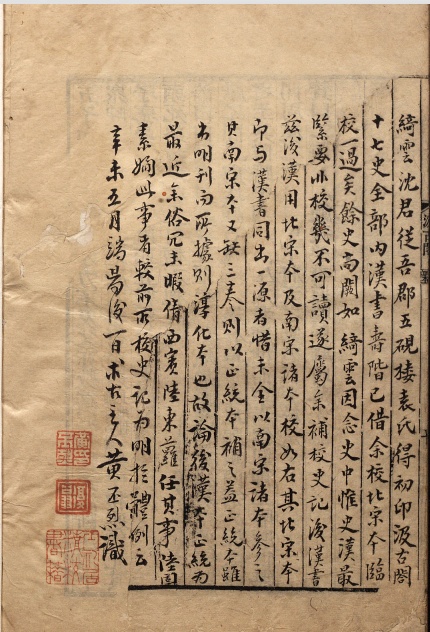 綺雲沈君從吾郡五硯樓袁氏得初印汲古閣
十七史全部内漢書壽階已借余校北宋本臨
校一過矣餘史尚闕如綺雲因念史中惟史漢最
緊要非校幾不可讀遂屬余補校史記後漢書
茲後漢用北宋本及南宋諸本校如右其北宋本
即與漢書同出一源者惜未全以南宋諸本參之
其南宋本又缺三奏則以正統本補之益正統本雖
出明刊而所據則淳化本也故論後漢本正統為
最近余俗冗未暇倩西賓陸東蘿任其事陸固
素嫺此事者較前所校史記為明於體例云
辛未五月端陽後一日求古主人黃丕烈識